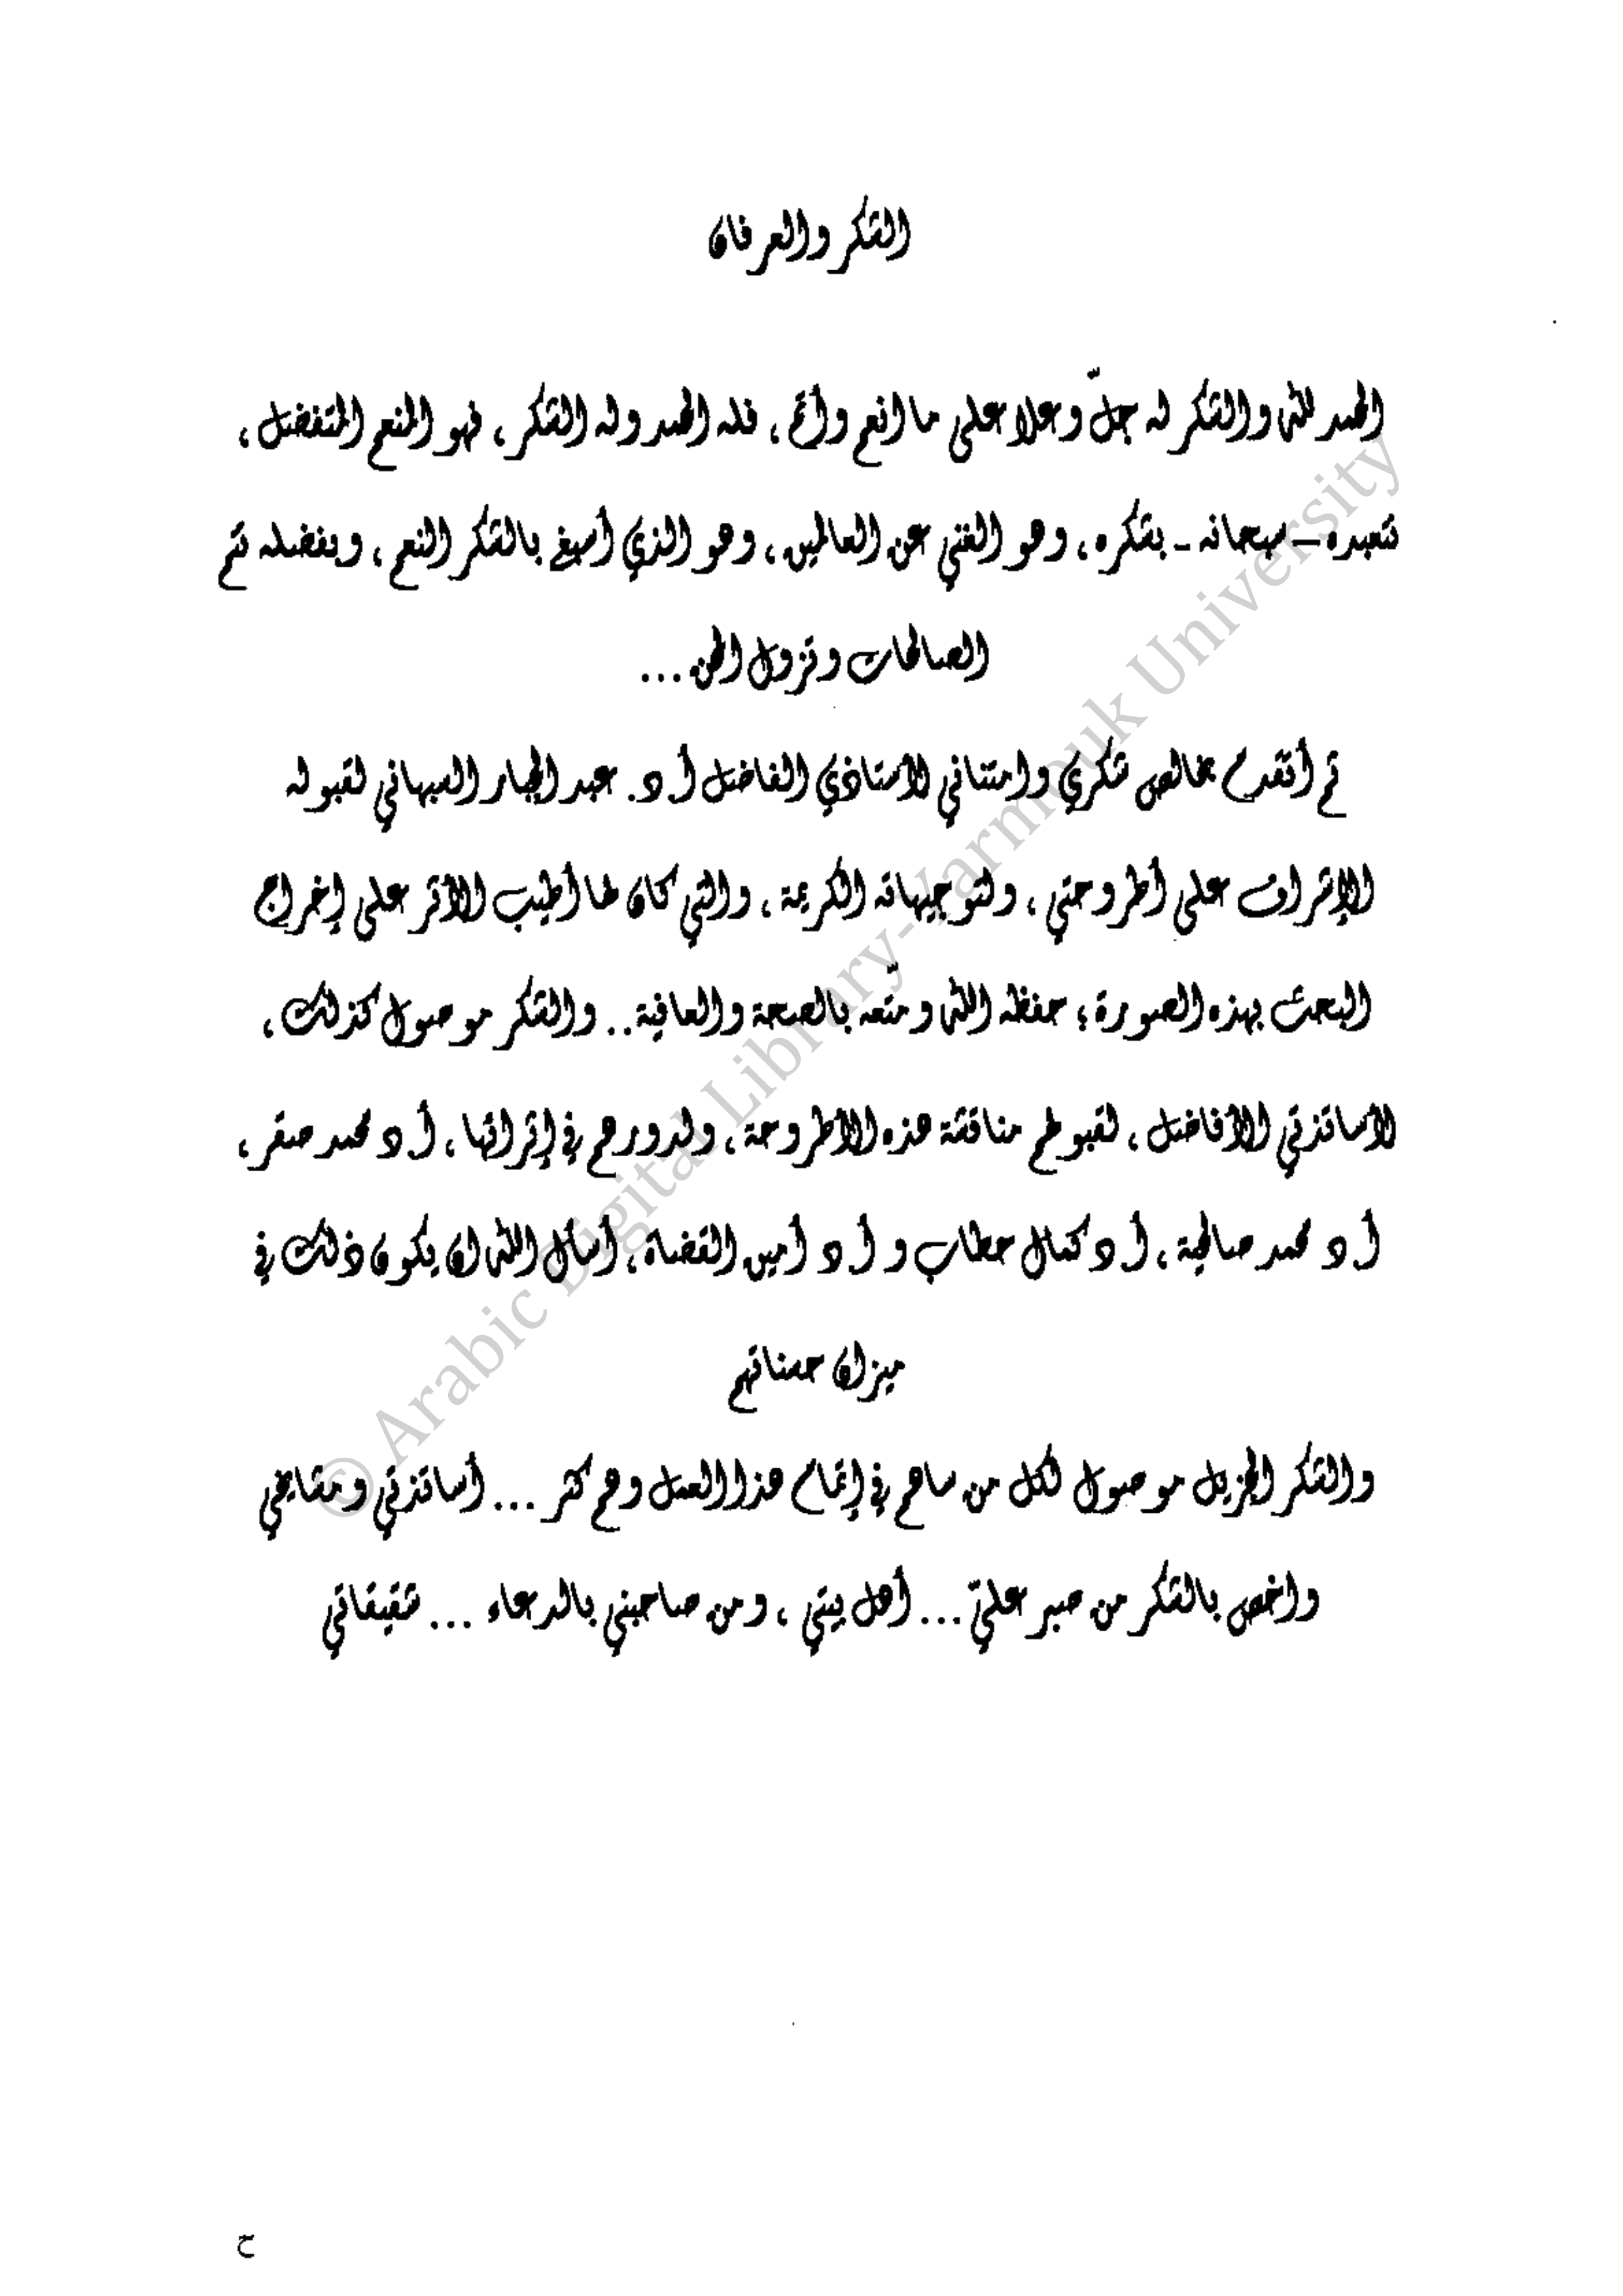 الشكر والعرفان
الحمد لله والشكر له جلّ وعلا على ما انعم وأتم ، فله الحمد وله الشكر ، فهو المنعم المتفضل ،
نتعبده – سبحانه - بشكره ، وهو الغني عن العالمين ، وهو الذي أسبغ بالشكر النعم ، وبفضله تتم
الصالحات وتزول المحن ...
ثم أتقدم بخالص شكري وامتناني لأستاذي الفاضل أ.د. عبد الجبار السبهاني لقبوله
الإشراف على أطروحتي ، ولتوجيهاته الكريمة ، والتي كان لها أطيب الأثر على إخراج
البحث بهذه الصورة ؛ حفظه الله ومتّعه بالصحة والعافية .. والشكر موصول كذلك ،
لأساتذتي الأفاضل ، لقبولهم مناقشة هذه الأطروحة ، ولدورهم في إثرائها ، أ.د محمد صقر ،
أ.د محمد صالحية ، أ.د كمال حطاب و أ.د أمين القضاة ، أسأل الله ان يكون ذلك في
ميزان حسناتهم
والشكر الجزيل موصول لكل من ساهم في إتمام هذا العمل وهم كثر ... أساتذتي ومشايخي
واخص بالشكر من صبر عليّ ... أهل بيتي ، ومن صاحبني بالدعاء ... شقيقاتي
ح
© Arabic Digital Library-Yarmouk University